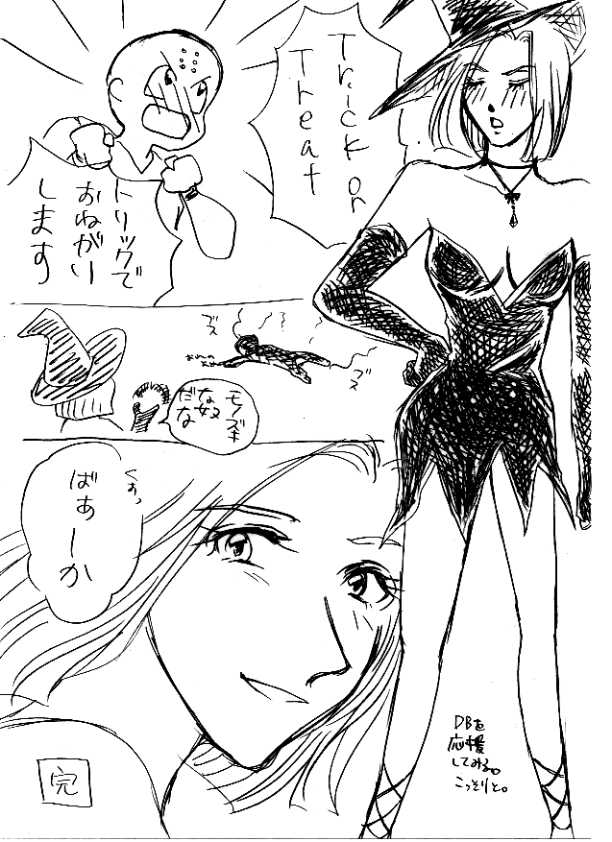 Trick or
Treat
トリックで
おねがい
します
ブス
ブス
モノズキ
な奴
だな
くすっ
ばぁーか
完
DBを
応援
してみる。
こっそりと。